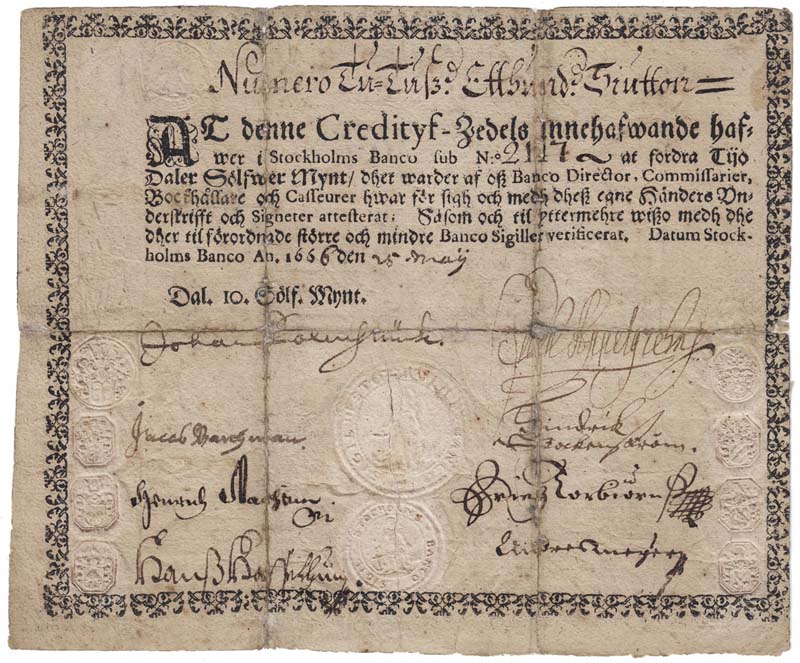 Numero Tu=Tuß: Etthund: Siutton =
AT denne Credityf-Zedels innehafwande haf-
wer i Stockholms Banco sub N:o 2117 at fordra Tijo
Daler Sölfwer Mynt/ dhet warder af oß Banco Director, Commissarier,
Bockhållare och Casseurer hwar för sigh och medh dheß egne Händers Vn-
derskrifft och Signeter attesterat; Såsom och til yttermehre wißo medh dhe
dher til förordnade större och mindre Banco Sigiller verificerat. Datum Stock-
holms Banco An. 1666 den 25 Maij
Dal. 10. Sölf. Mynt.
Johan
Jacob
Hindrik
Henrich
Hanß